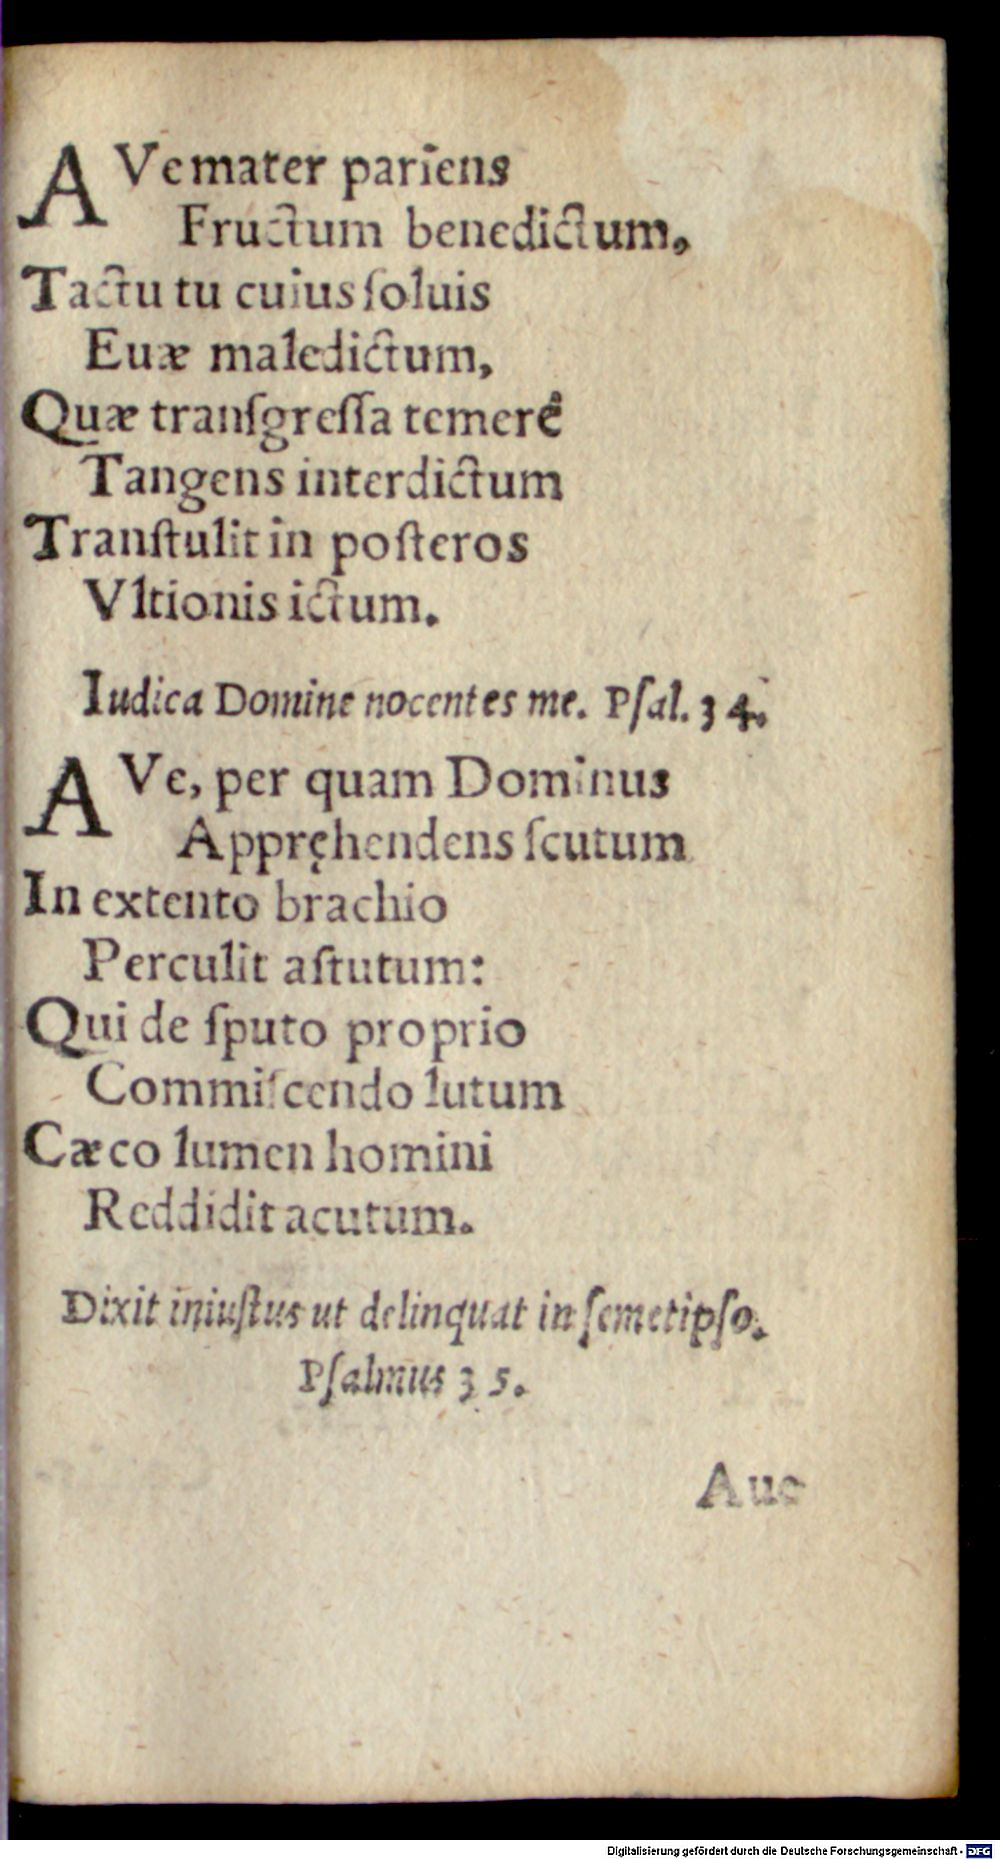 AVe mater pariens
Fructum benedictum,
Tactu tu cuius ſoluis
Euæ maledictum,
Quæ tranſgreſſa temerè
Tangens interdictum
Tranſtulit in poſteros
Vltionis ictum.
Iudica Domine nocentes me. Pſal. 34.
AVe, per quam Dominus
Appręhendens ſcutum
In extento brachio
Perculit aſtutum:
Qui de ſputo proprio
Commiſcendo lutum
Cæco lumen homini
Reddidit acutum.
Dixit iniuſtus ut delinquat in ſemetipſo.
Pſalmus 35.
Aue
Digitalisierung gefördert durch die Deutsche Forschungsgemeinschaft - DFG